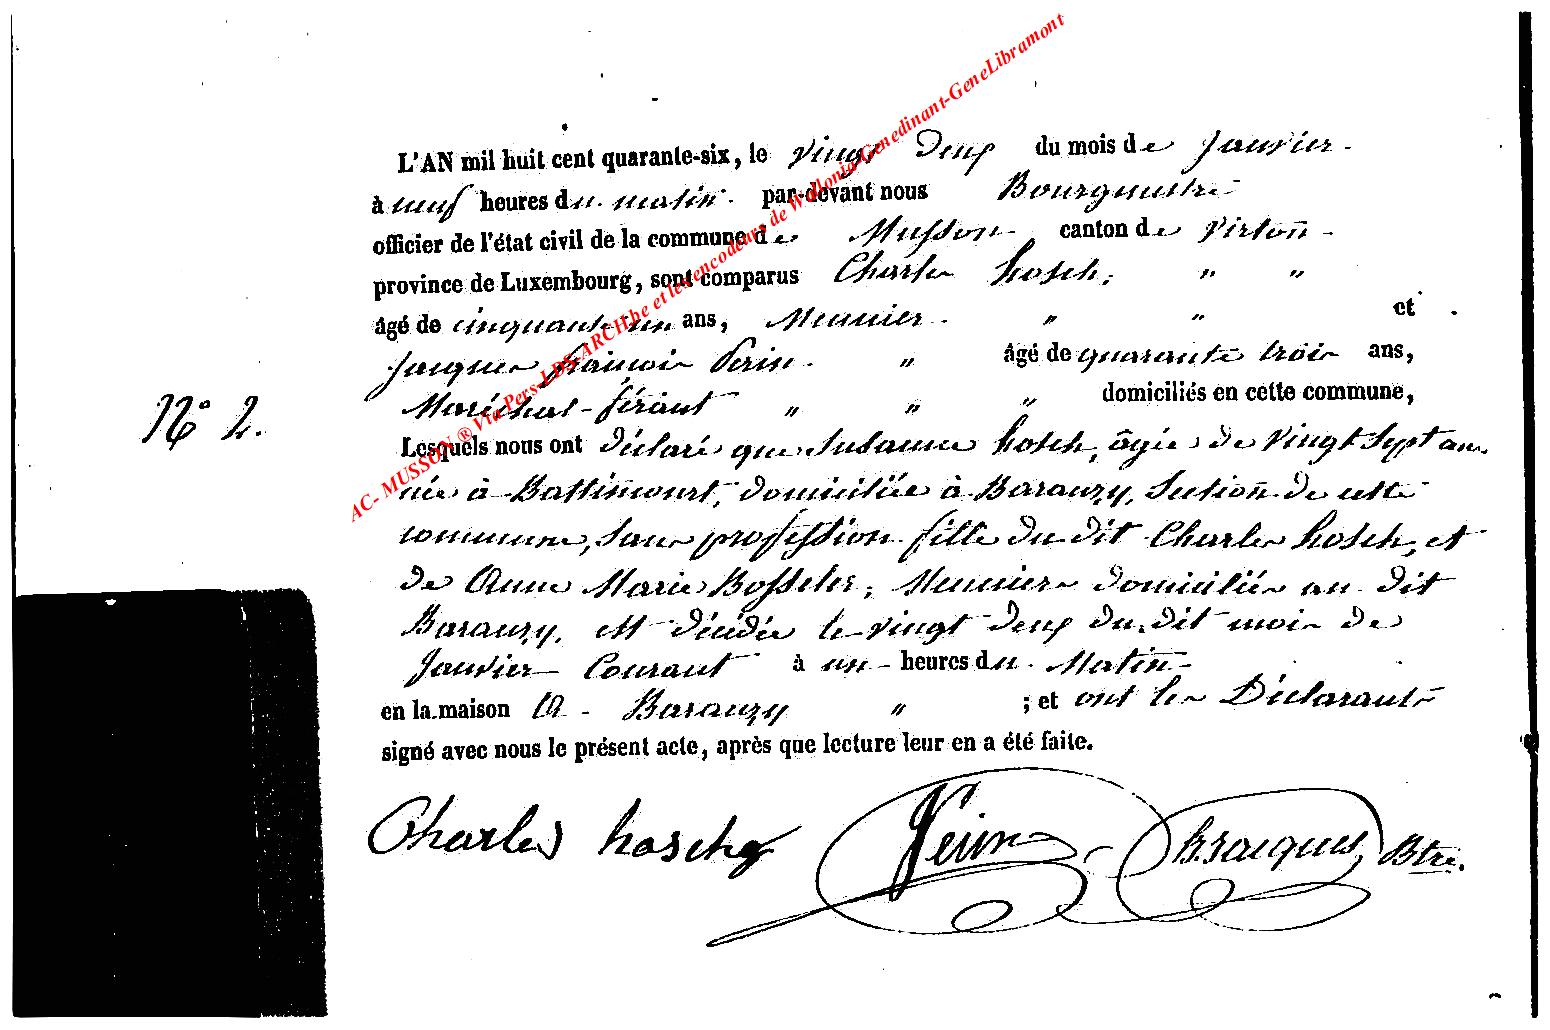 L'AN mil huit cent quarante-six, le vingt Deux du mois de Janvier
à neuf heures du matin par-devant nous Bourgmestre
officier de l'état civil de la commune de Musson canton de Virton
province de Luxembourg, sont comparus Charles hosch; " "
âgé de cinquante un ans, Meunier " " et
Jacques françois Perin " âgé de quarante trois ans,
Maréchal-férant " " " domiciliés en cette commune,
N° 2.
Lesquels nous ont déclaré que Susanne hosch, âgée de vingt sept ans
née à Battincourt, domiciliée à Baranzy, Section de cette
commune, sans profession fille du dit Charles hosch, et
de Anne Marie Bosseler, Meuniers domiciliés au dit
Baranzy, est décédée le vingt Deux du dit mois de
Janvier Courant à un heures du Matin
en la maison A Baranzy " ; et ont les Déclarants
signé avec nous le présent acte, après que lecture leur en a été faite.
Charles hosch Perin Bre.
AC- MUSSON ® Via Pers-LDS-ARCH.be et les encodeurs de Wallonia-Genedinant-GeneLibramont